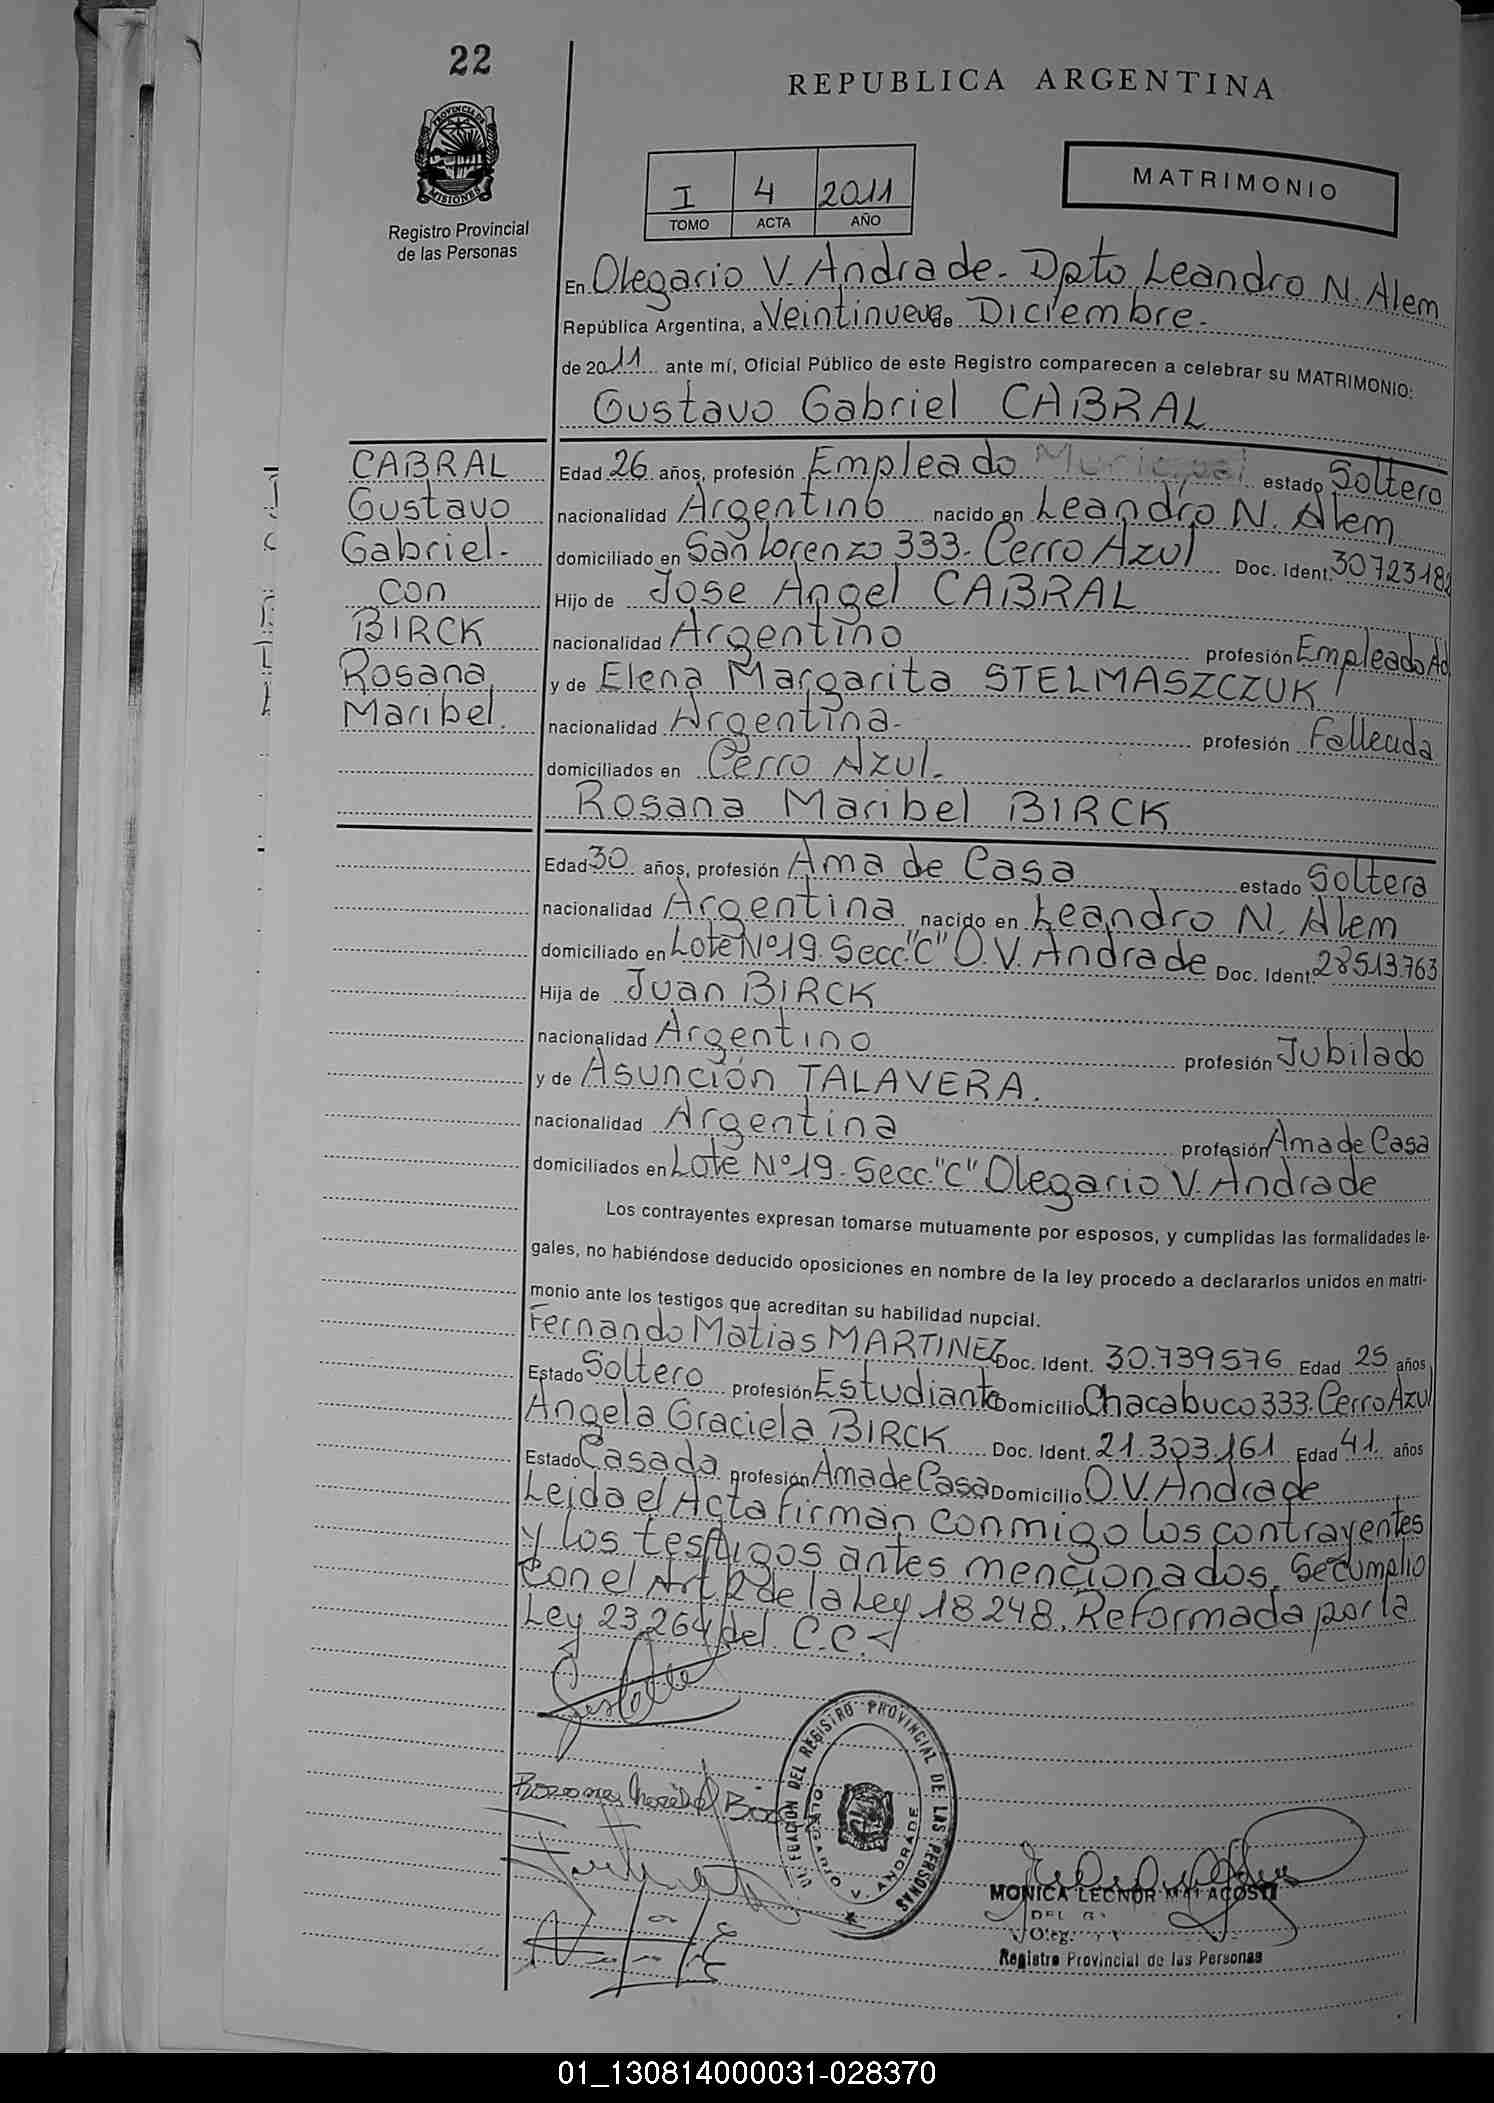 22
REPUBLICA ARGENTINA
PROVINCIA DE
MISIONES
Registro Provincial
de las Personas
I 4 2011
TOMO ACTA AÑO
MATRIMONIO
En Olegario V. Andrade. Dpto Leandro N. Alem
República Argentina, a Veintinueve de Diciembre.
de 2011 ante mí, Oficial Público de este Registro comparecen a celebrar su MATRIMONIO:
Gustavo Gabriel CABRAL
CABRAL
Gustavo
Gabriel.-
con
BIRCK
Rosana
Maribel.
Edad 26 años, profesión Empleado Municipal estado Soltero
nacionalidad Argentino nacido en Leandro N. Alem
domiciliado en San Lorenzo 333. Cerro Azul Doc. Ident. 30723182
Hijo de Jose Angel CABRAL
nacionalidad Argentino profesión Empleado Ad
y de Elena Margarita STELMASZCZUK
nacionalidad Argentina- profesión Fallecida
domiciliados en Cerro Azul.-
Rosana Maribel BIRCK
Edad 30 años, profesión Ama de Casa estado Soltera
nacionalidad Argentina nacido en Leandro N. Alem
domiciliado en Lote Nº 19. Secc. "C" O.V. Andrade Doc. Ident. 28513.763
Hija de Juan BIRCK
nacionalidad Argentino profesión Jubilado
y de Asunción TALAVERA.
nacionalidad Argentina profesión Ama de Casa
domiciliados en Lote Nº 19. Secc. "C" Olegario V. Andrade
Los contrayentes expresan tomarse mutuamente por esposos, y cumplidas las formalidades le-
gales, no habiéndose deducido oposiciones en nombre de la ley procedo a declararlos unidos en matri-
monio ante los testigos que acreditan su habilidad nupcial.
Fernando Matias MARTINEZ Doc. Ident. 30.739576 Edad 25 años
Estado Soltero profesión Estudiante Domicilio Chacabuco 333. Cerro Azul
Angela Graciela BIRCK Doc. Ident. 21.303.161 Edad 41. años
Estado Casada profesión Ama de Casa Domicilio O.V. Andrade
Leida el Acta firman conmigo los contrayentes
y los testigos antes mencionados. Se cumplio
con el Art. 2 de la Ley 18248. Reformada por la
Ley 23.264 del C.C.
Rosana Maribel Birck
DELEGACION DEL REGISTRO PROVINCIAL DE LAS PERSONAS
OLEGARIO V. ANDRADE
MONICA LEONOR
Registro Provincial de las Personas
01_130814000031-028370